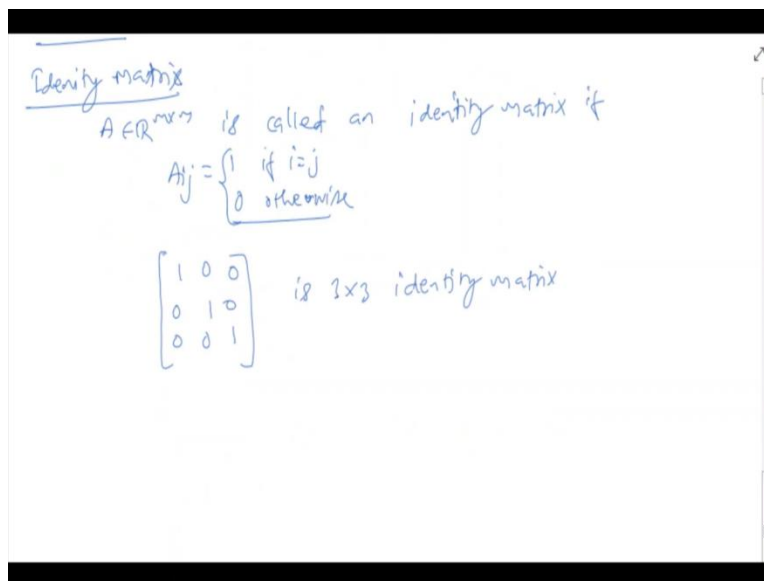 Idenity matrix
A ∈ R^{m×m} is called an identity matrix if
Aij = { 1 if i=j
0 otherwise
[ 1 0 0
0 1 0
0 0 1 ] is 3×3 identity matrix